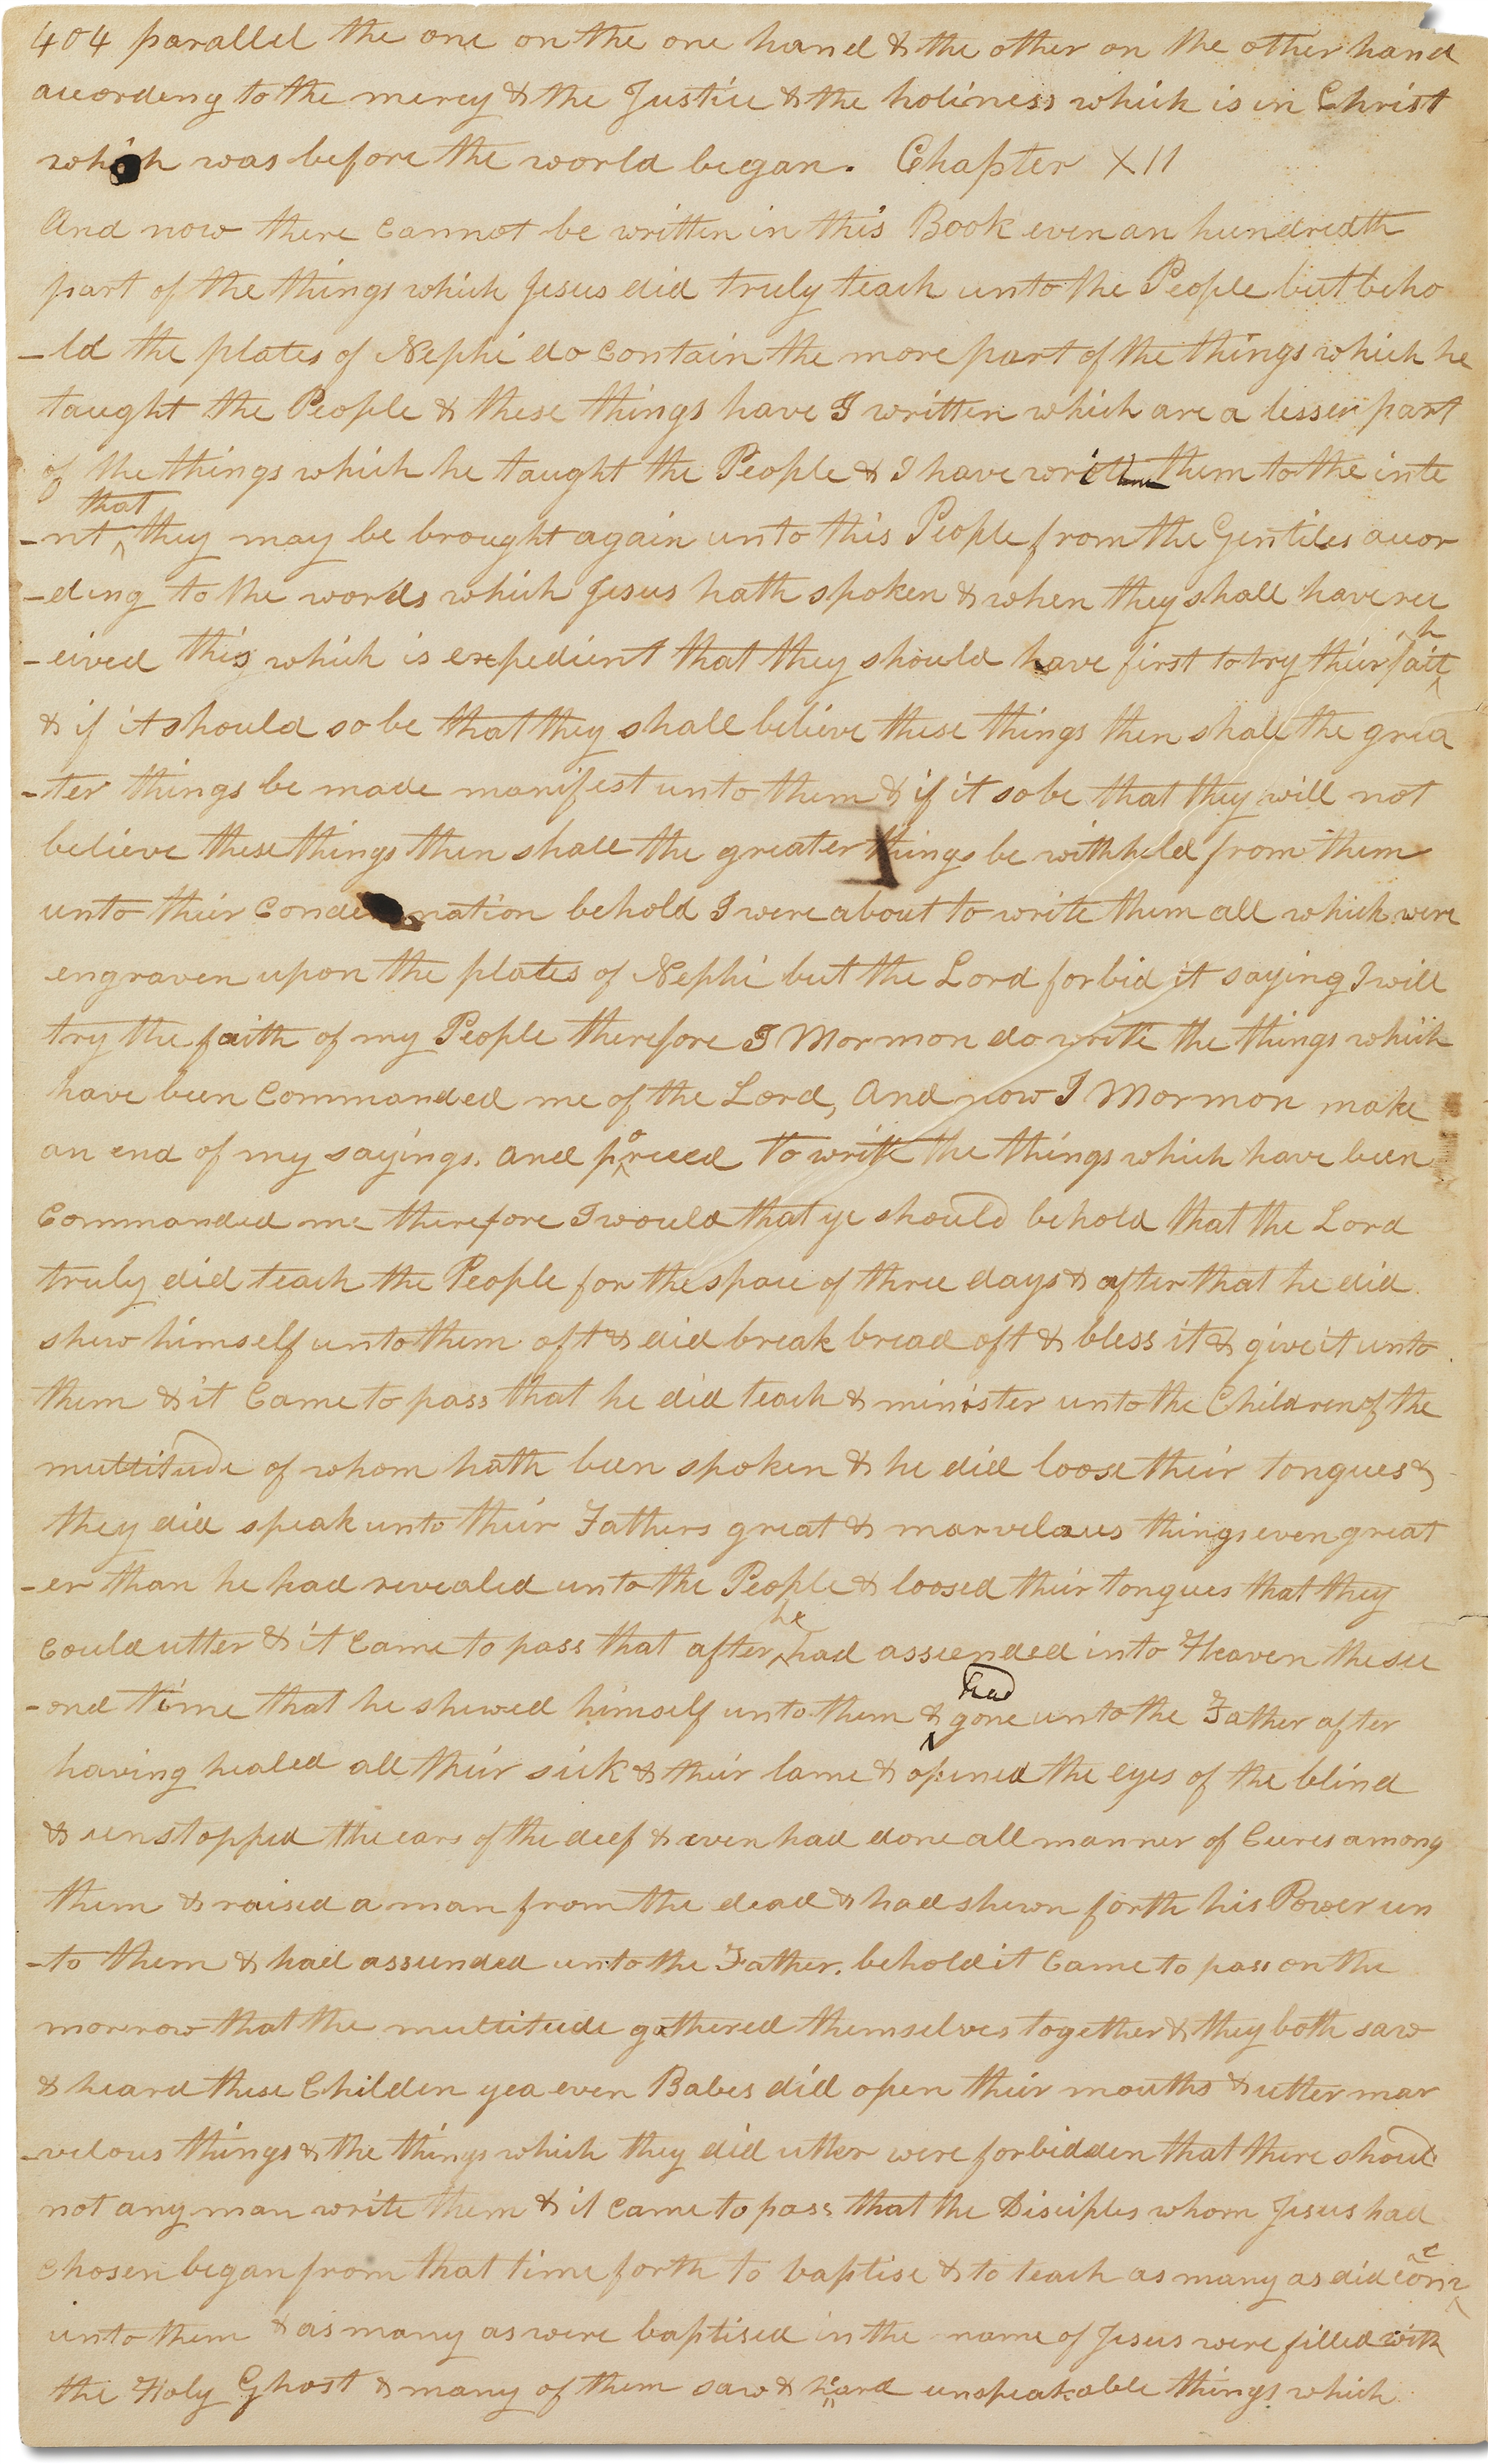 404 parallel the one on the one hand & the other on the other hand
according to the mercy & the Justice & the holiness which is in Christ
which was before the world began. Chapter XII
And now there cannot be written in this Book even an hundredth
part of the things which Jesus did truly teach unto the People but beho
-ld the plates of Nephi do contain the more part of the things which he
taught the People & these things have I written which are a lesser part
of the things which he taught the People & I have written them to the inte
-nt that they may be brought again unto this People from the Gentiles accor
-ding to the words which Jesus hath spoken & when they shall have rec
-eived this which is expedient that they should have first to try their faith
& if it should so be that they shall believe these things then shall the grea
-ter things be made manifest unto them & if it so be that they will not
believe these things then shall the greater things be withheld from them
unto their condemnation behold I were about to write them all which were
engraven upon the plates of Nephi but the Lord forbid it saying I will
try the faith of my People therefore I Mormon do write the things which
have been Commanded me of the Lord, And now I Mormon make
an end of my sayings. and porceed to write the things which have been
Commanded me therefore I would that ye should behold that the Lord
truly did teach the People for the space of three days & after that he did
shew himself unto them oft & did break bread oft & bless it & give it unto
them & it Came to pass that he did teach & minister unto the Children of the
multitude of whom hath been spoken & he did loose their tongues &
they did speak unto their Fathers great & marvelous things even great
-er than he had revealed unto the People & loosed their tongues that they
could utter & it Came to pass that after he had assended into Heaven the sec
-ond time that he shewed himself unto them & had gone unto the Father after
having healed all their sick & their lame & opened the eyes of the blind
& unstopped the ears of the deef & even had done all manner of Cures among
them & raised a man from the dead & had shewn forth his Power un
-to them & had assended unto the Father. behold it Came to pass on the
morrow that the multitude gathered themselves together & they both saw
& heard these Childen yea even Babes did open their mouths & utter mar
-velous things & the things which they did utter were forbidden that there should
not any man write them & it came to pass that the Disciples whom Jesus had
Chosen began from that time forth to baptise & to teach as many as did come
unto them & as many as were baptised in the name of Jesus were filled with
the Holy Ghost & many of them saw & heard unspeakable things which